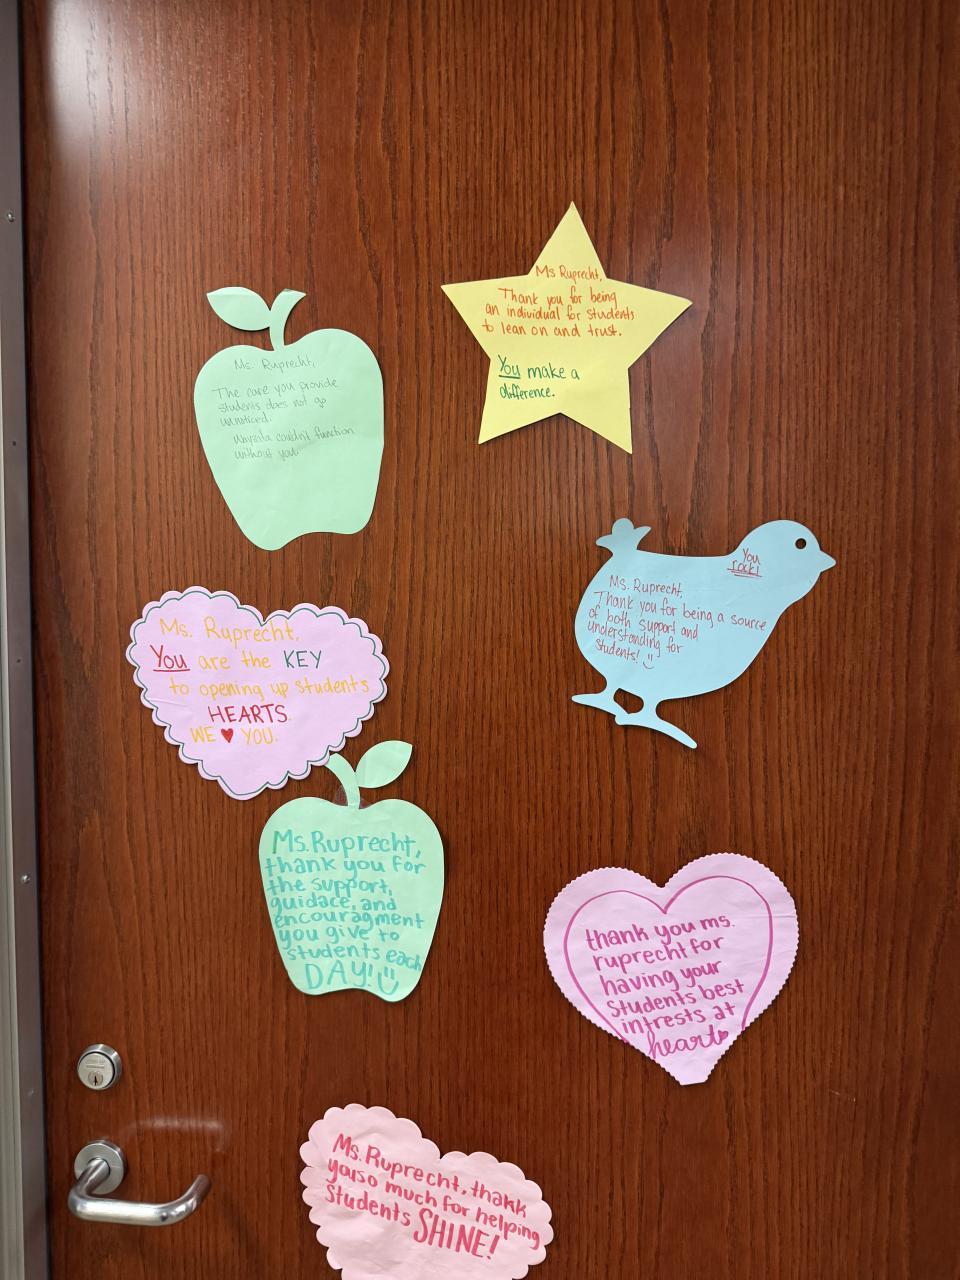 Ms Ruprecht,
Thank you for being
an individual for students
to lean on and trust.
You make a
difference.
Ms. Ruprecht,
The care you provide
students does not go
unnoticed.
Wayzata couldn't function
without you.
You
rock!
Ms. Ruprecht,
Thank you for being a source
of both support and
understanding for
students!
Ms. Ruprecht,
You are the KEY
to opening up students
HEARTS.
WE ♥ YOU.
Ms. Ruprecht,
thank you for
the support,
guidace, and
encouragment
you give to
students each
DAY!
thank you ms.
ruprecht for
having your
students best
intrests at
heart
Ms. Ruprecht, thakk
you so much for helping
students SHINE!